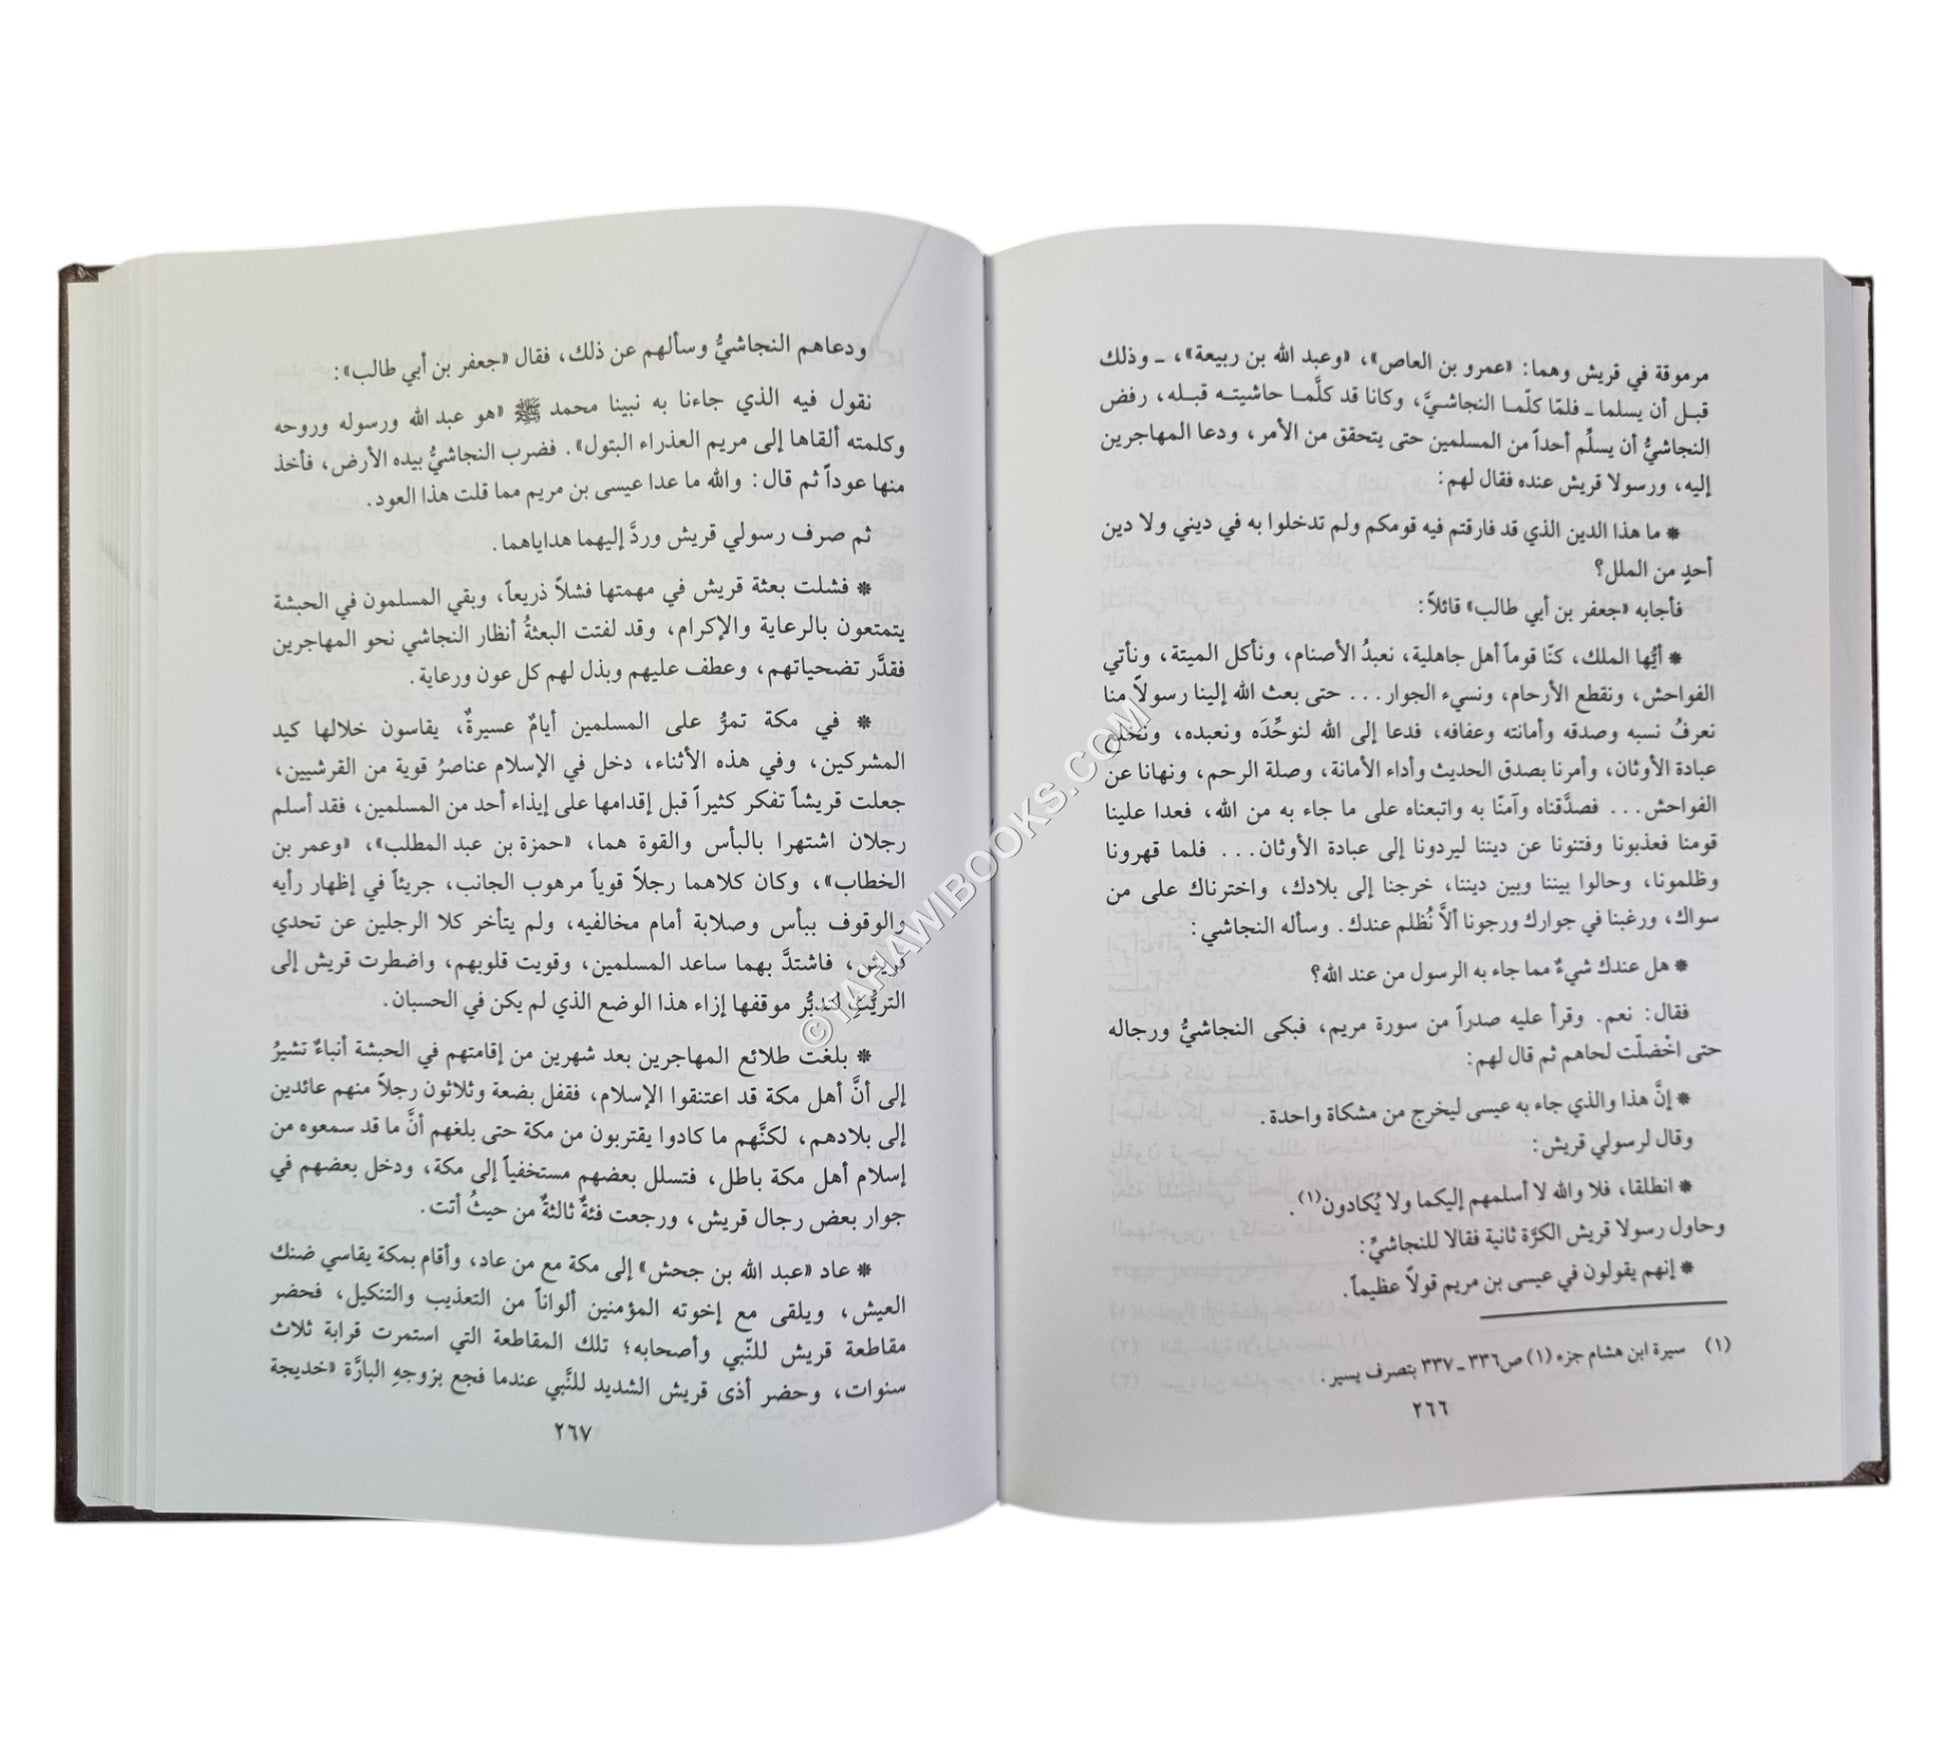 مرموقة في قريش وهما: «عمرو بن العاص»، «وعبد الله بن ربيعة»، ـ وذلك
قبل أن يسلما ـ فلمّا كلّما النجاشيَّ، وكانا قد كلَّما حاشيته قبله، رفض
النجاشيُّ أن يسلِّم أحداً من المسلمين حتى يتحقق من الأمر، ودعا المهاجرين
إليه، ورسولا قريش عنده فقال لهم:
* ما هذا الدين الذي قد فارقتم فيه قومكم ولم تدخلوا به في ديني ولا دين
أحدٍ من الملل؟
فأجابه «جعفر بن أبي طالب» قائلاً:
* أيُّها الملك، كنّا قوماً أهل جاهلية، نعبدُ الأصنام، ونأكل الميتة، ونأتي
الفواحش، ونقطع الأرحام، ونسيء الجوار... حتى بعث الله إلينا رسولاً منا
نعرفُ نسبه وصدقه وأمانته وعفافه، فدعا إلى الله لنوحِّدَه ونعبده، ونخلع
عبادة الأوثان، وأمرنا بصدق الحديث وأداء الأمانة، وصلة الرحم، ونهانا عن
الفواحش... فصدَّقناه وآمنّا به واتبعناه على ما جاء به من الله، فعدا علينا
قومنا فعذبونا وفتنونا عن ديننا ليردونا إلى عبادة الأوثان... فلما قهرونا
وظلمونا، وحالوا بيننا وبين ديننا، خرجنا إلى بلادك، واخترناك على من
سواك، ورغبنا في جوارك ورجونا ألاَّ نُظلم عندك. وسأله النجاشي:
* هل عندك شيءٌ مما جاء به الرسول من عند الله؟
فقال: نعم. وقرأ عليه صدراً من سورة مريم، فبكى النجاشيُّ ورجاله
حتى اخْضلّت لحاهم ثم قال لهم:
* إنَّ هذا والذي جاء به عيسى ليخرج من مشكاة واحدة.
وقال لرسولي قريش:
* انطلقا، فلا والله لا أسلمهم إليكما ولا يُكادون(١).
وحاول رسولا قريش الكرَّة ثانية فقالا للنجاشيِّ:
* إنهم يقولون في عيسى بن مريم قولاً عظيماً.
(١) سيرة ابن هشام جزء (١) ص٣٣٦ ـ ٣٣٧ بتصرف يسير.
٢٦٦
ودعاهم النجاشيُّ وسألهم عن ذلك، فقال «جعفر بن أبي طالب»:
نقول فيه الذي جاءنا به نبينا محمد ﷺ «هو عبد الله ورسوله وروحه
وكلمته ألقاها إلى مريم العذراء البتول». فضرب النجاشيُّ بيده الأرض، فأخذ
منها عوداً ثم قال: والله ما عدا عيسى بن مريم مما قلت هذا العود.
ثم صرف رسولي قريش وردَّ إليهما هداياهما.
* فشلت بعثة قريش في مهمتها فشلاً ذريعاً، وبقي المسلمون في الحبشة
يتمتعون بالرعاية والإكرام، وقد لفتت البعثةُ أنظار النجاشي نحو المهاجرين
فقدَّر تضحياتهم، وعطف عليهم وبذل لهم كل عون ورعاية.
* في مكة تمرُّ على المسلمين أيامٌ عسيرةٌ، يقاسون خلالها كيد
المشركين، وفي هذه الأثناء، دخل في الإسلام عناصرُ قوية من القرشيين،
جعلت قريشاً تفكر كثيراً قبل إقدامها على إيذاء أحد من المسلمين، فقد أسلم
رجلان اشتهرا بالبأس والقوة هما، «حمزة بن عبد المطلب»، «وعمر بن
الخطاب»، وكان كلاهما رجلاً قوياً مرهوب الجانب، جريئاً في إظهار رأيه
والوقوف ببأس وصلابة أمام مخالفيه، ولم يتأخر كلا الرجلين عن تحدي
قريش، فاشتدَّ بهما ساعد المسلمين، وقويت قلوبهم، واضطرت قريش إلى
التريُّثِ لتدبُّر موقفها إزاء هذا الوضع الذي لم يكن في الحسبان.
* بلغت طلائع المهاجرين بعد شهرين من إقامتهم في الحبشة أنباءٌ تشيرُ
إلى أنَّ أهل مكة قد اعتنقوا الإسلام، فقفل بضعة وثلاثون رجلاً منهم عائدين
إلى بلادهم، لكنَّهم ما كادوا يقتربون من مكة حتى بلغهم أنَّ ما قد سمعوه من
إسلام أهل مكة باطل، فتسلل بعضهم مستخفياً إلى مكة، ودخل بعضهم في
جوار بعض رجال قريش، ورجعت فئةٌ ثالثةٌ من حيثُ أتت.
* عاد «عبد الله بن جحش» إلى مكة مع من عاد، وأقام بمكة يقاسي ضنك
العيش، ويلقى مع إخوته المؤمنين ألواناً من التعذيب والتنكيل، فحضر
مقاطعة قريش للنّبي وأصحابه؛ تلك المقاطعة التي استمرت قرابة ثلاث
سنوات، وحضر أذى قريش الشديد للنَّبي عندما فجع بزوجهِ البارَّة «خديجة
٢٦٧
©TAHAWIBOOKS.COM